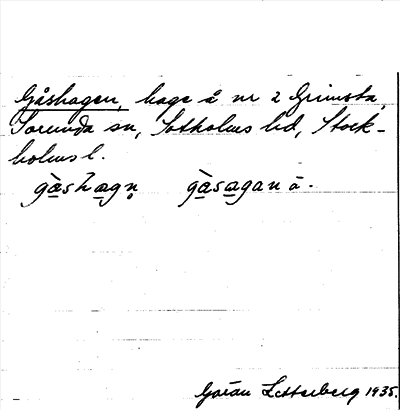 Gåshagen, hage å nr 2 Grimsta,
Sorunda sn, Sotholms hd, Stock-
holms l.
gàshagn̥ gàsagan ä.
Göran Setterberg 1935.